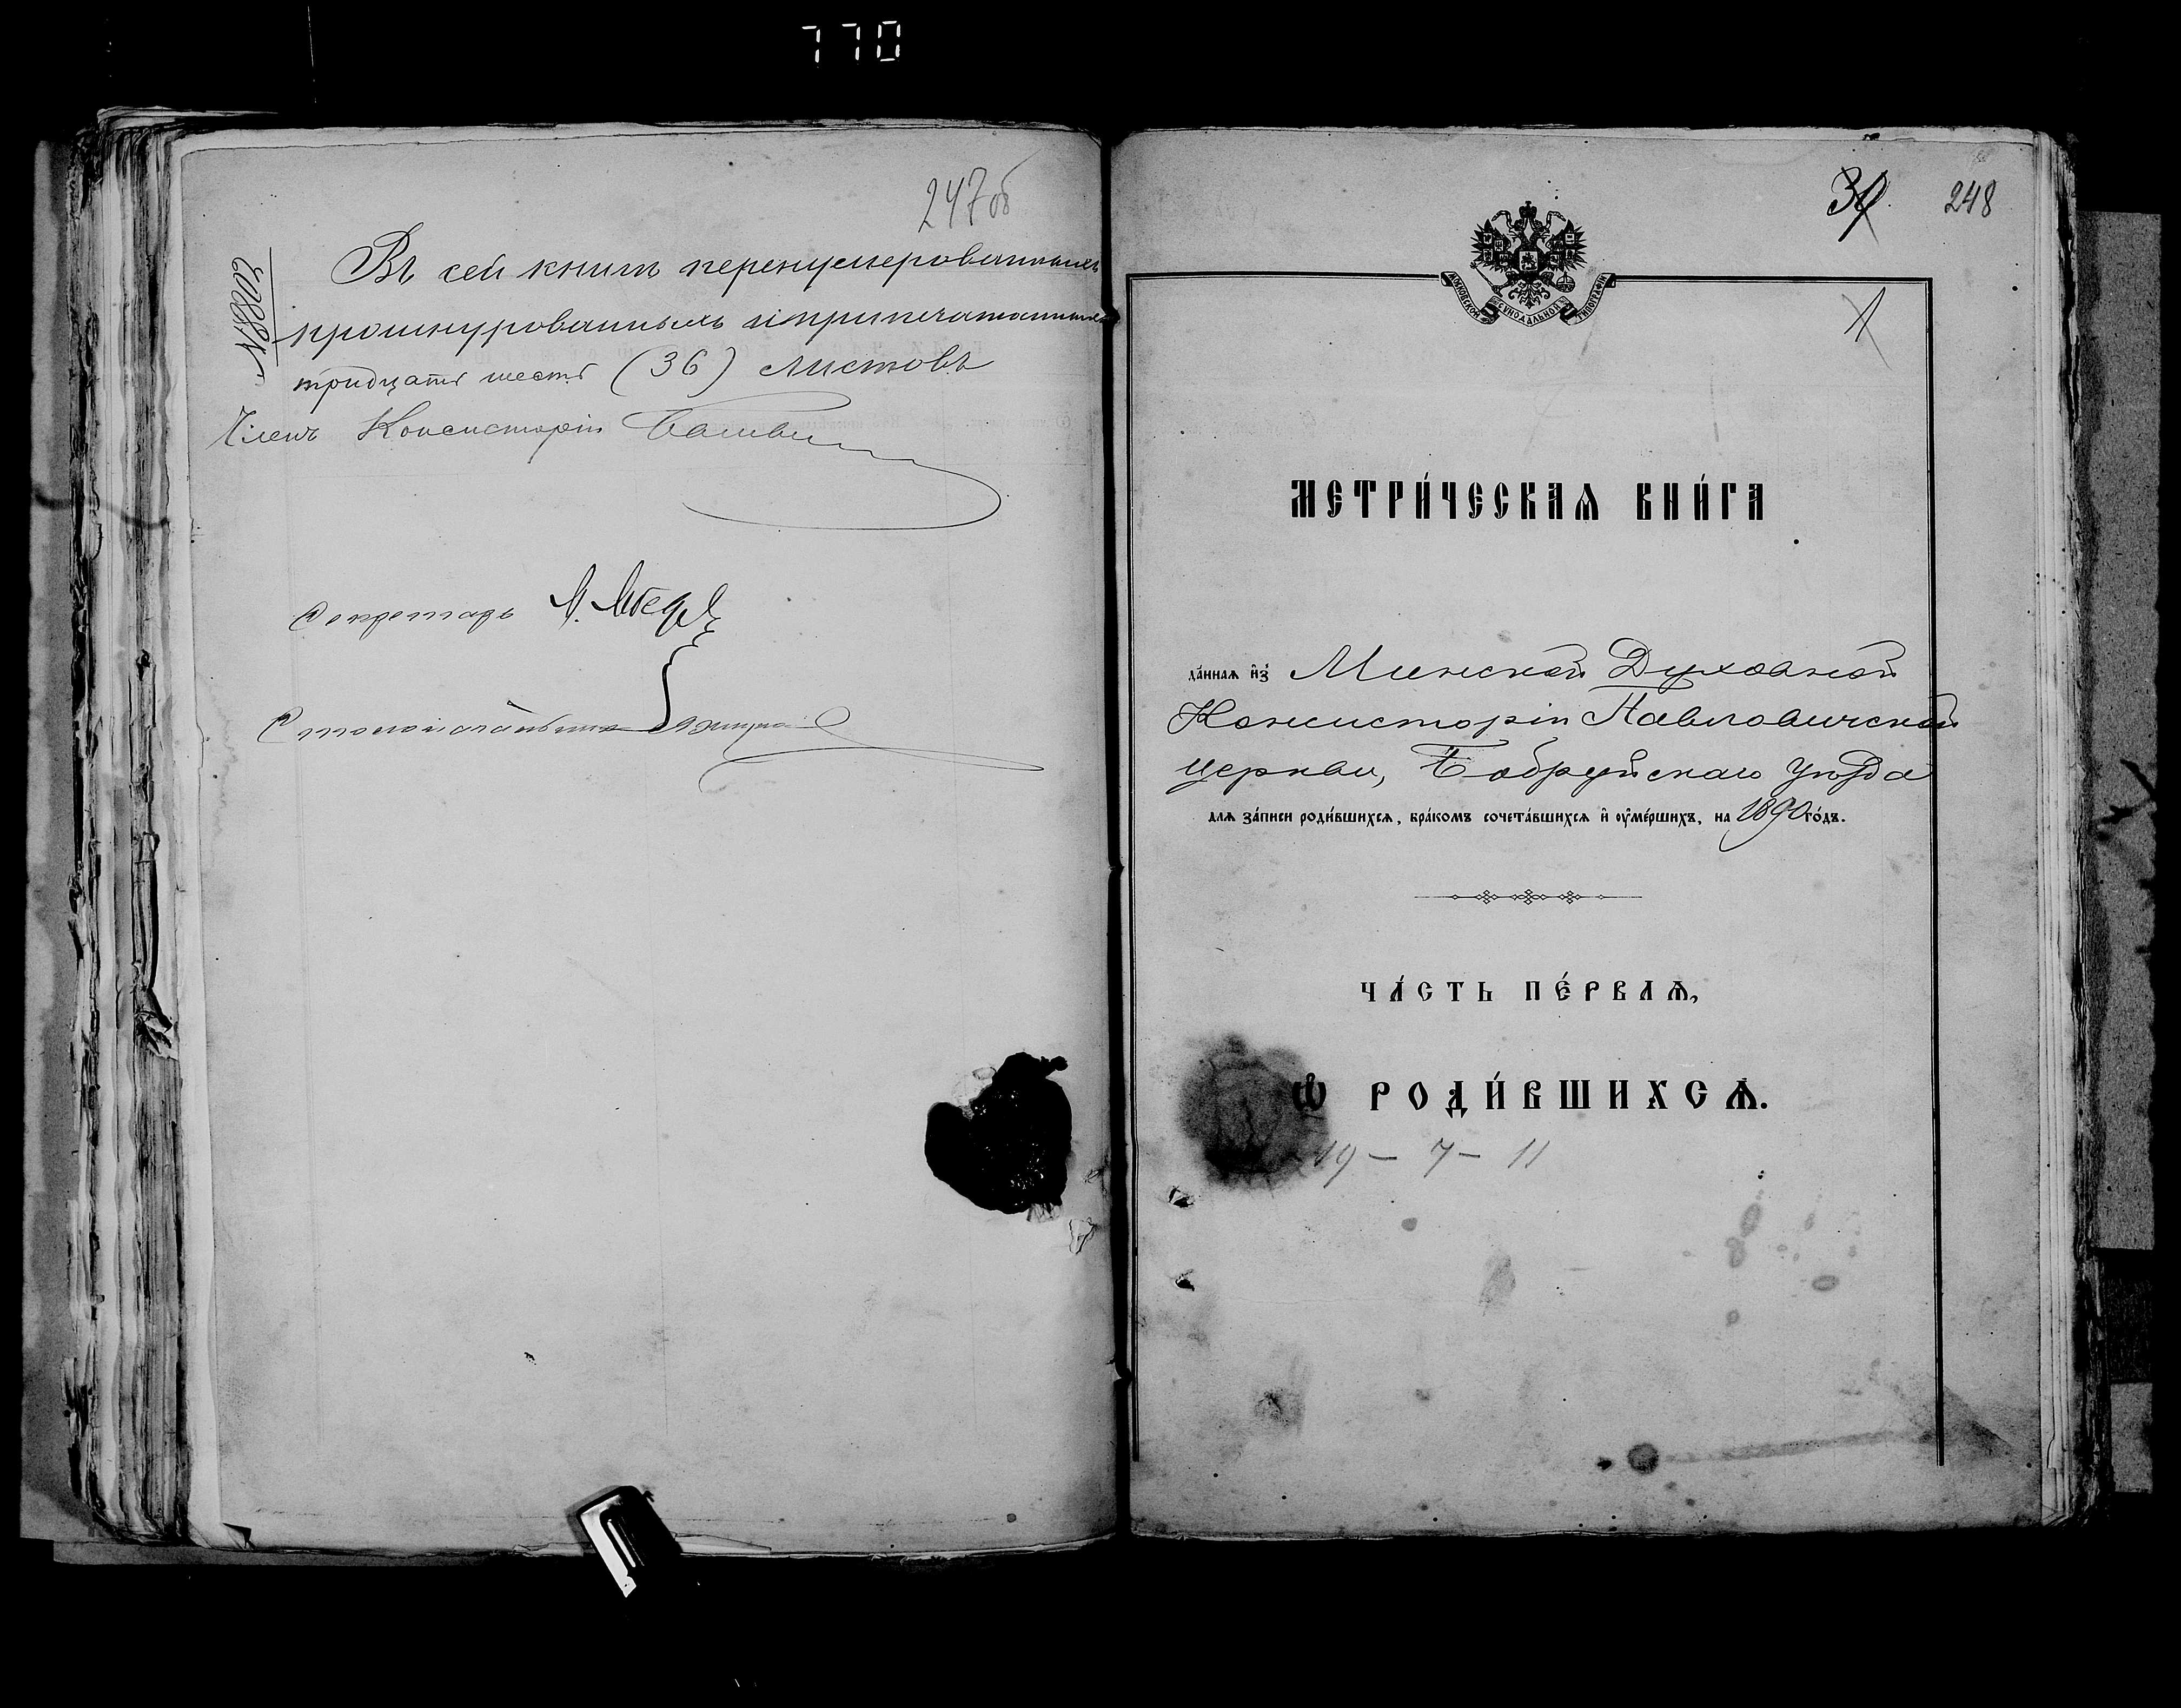 770
247 об
Въ сей книгѣ перенумерованныхъ
прошнурованныхъ и припечатанныхъ
тридцать шесть (36) листовъ
Членъ Консисторіи
Секретарь
Столоначальникъ
248
1
МОСКОВСКОЙ СѴНОДАЛЬНОЙ ТИПОГРАФІИ
МЕТРИ́ЧЕСКАѦ КНИ́ГА
да́ннаѧ и҆з̾ Минской Духовной
Консисторіи Павловичской
церкви, Бобруйскаго уѣзда
длѧ за́писи роди́вшихсѧ, бра́комъ сочета́вшихсѧ и҆ ѹ҆ме́ршихъ, на 1890 го́дъ.
ЧА́СТЬ ПЕ́РВАѦ,
Ѡ҆ РОДИ́ВШИХСѦ.
19 – 7 – 11